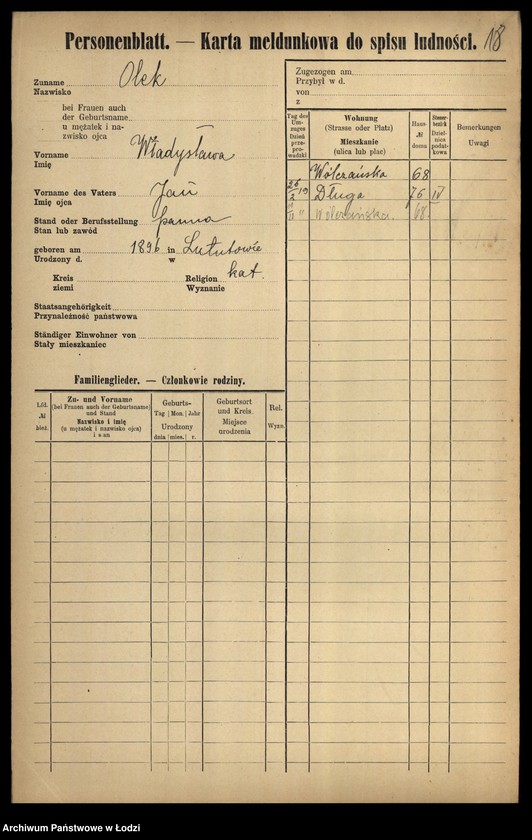 Personenblatt. — Karta meldunkowa do spisu ludności. 18
Zuname Olek
Nazwisko
bei Frauen auch
der Geburtsname
u mężatek i na-
zwisko ojca
Vorname Władysława
Imię
Vorname des Vaters Jan
Imię ojca
Stand oder Berufsstellung panna
Stan lub zawód
geboren am 1896 in Lututowie
Urodzony d. w
Kreis Religion kat.
ziemi Wyznanie
Staatsangehörigkeit
Przynależność państwowa
Ständiger Einwohner von
Stały mieszkaniec
Zugezogen am
Przybył w d.
von
z
Tag des Um-zuges Dzień prze-pro-wadzki
Wohnung (Strasse oder Platz) Mieszkanie (ulica lub plac)
Haus- № domu
Steuer-bezirk Dziel-nica podat-kowa
Bemerkungen Uwagi
Wólczańska 68
26/2 19 Długa 76 IV
" 68.
Familienglieder. — Członkowie rodziny.
Lfd. № bież.
Zu- und Vorname
(bei Frauen auch der Geburtsname)
und Stand
Nazwisko i imię
(u mężatek i nazwisko ojca)
i stan
Geburts-
Tag Mon. Jahr
Urodzony
dnia mies. r.
Geburtsort
und Kreis.
Miejsce
urodzenia
Rel.
Wyzn.
Archiwum Państwowe w Łodzi